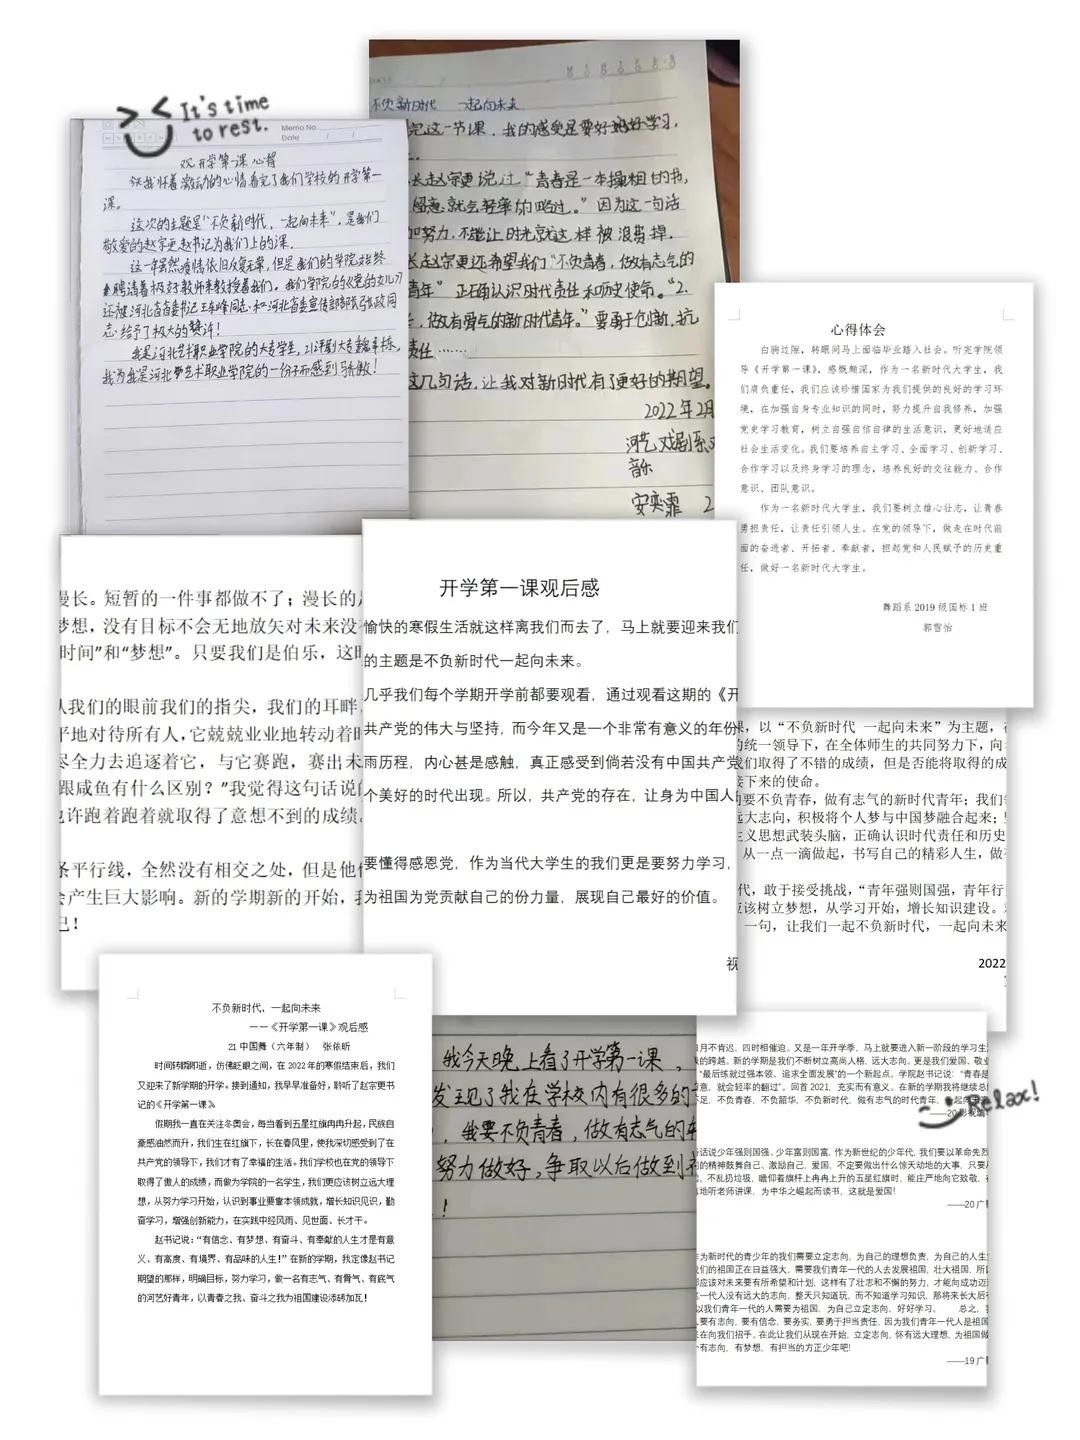 It's time
to rest.
Memo No.
Date / /
观开学第一课心得
今天我怀着激动的心情看完了我们学校的开学第一
课。
这次的主题是“不负新时代，一起向未来”，是我们
敬爱的赵宗更赵书记为我们上的课.
这一年虽然疫情依旧反复无常，但是我们的学院始终
聘请着极好教师来教授着我们。我们学院的《党的女儿》
还被河北省省委书记王东峰同志和河北省委宣传部部长张政同
志给予了极大的赞许！
我是河北艺术职业学院的大专学生，
我为我是河北艺术职业学院的一份子而感到骄傲！
不负新时代 一起向未来
完这一节课，我的感受是要好好学习，
长赵宗更说过“青春是一本操粗的书，
因为这一句话
加努力，不能让时光就这样被浪费掉.
长赵宗更还希望我们“不负青春，做有志气的
青年” 正确认识时代责任和历史使命。“2.
，做有勇气的新时代青年。”要勇于创新，抗
责任……
这几句话，让我对新时代有了更好的期望。
2022年2月
河艺戏剧系
音乐
安奕霏 2
心得体会
白驹过隙，转眼间马上面临毕业踏入社会。听完学院领
导《开学第一课》，感慨颇深，作为一名新时代大学生，我
们肩负重任，我们应该珍惜国家为我们提供的良好的学习环
境，在加强自身专业知识的同时，努力提升自我修养，加强
党史学习教育，树立自强自信自律的生活意识，更好地适应
社会生活变化。我们要培养自主学习、全面学习、创新学习、
合作学习以及终身学习的理念，培养良好的交往能力、合作
意识、团队意识。
作为一名新时代大学生，我们要树立雄心壮志，让青春
勇担责任，让责任引领人生。在党的领导下，做走在时代前
面的奋进者、开拓者、奉献者，担起党和人民赋予的历史重
任，做好一名新时代大学生。
舞蹈系 2019 级国标 1 班
郭雪怡
漫长。短暂的一件事都做不了；漫长的
梦想，没有目标不会无地放矢对未来没
时间”和“梦想”。只要我们是伯乐，这
从我们的眼前我们的指尖，我们的耳畔
平地对待所有人，它就就业业地转动着
尽全力去追逐着它，与它赛跑，赛出未
跟咸鱼有什么区别？”我觉得这句话说
也许跑着跑着就取得了意想不到的成绩
条平行线，全然没有相交之处，但是他
会产生巨大影响。新的学期新的开始，
己！
开学第一课观后感
愉快的寒假生活就这样离我们而去了，马上就要迎来我们
的主题是不负新时代一起向未来。
几乎我们每个学期开学前都要观看，通过观看这期的《开
共产党的伟大与坚持，而今年又是一个非常有意义的年份
雨历程，内心甚是感触，真正感受到倘若没有中国共产党
个美好的时代出现。所以，共产党的存在，让身为中国人
要懂得感恩党，作为当代大学生的我们更是要努力学习，
为祖国为党贡献自己的份力量，展现自己最好的价值。
视
课，以“不负新时代 一起向未来”为主题，
的统一领导下，在全体师生的共同努力下，向
我们取得了不错的成绩，但是否能将取得的成
接下来的使命。
要不负青春，做有志气的新时代青年；我们
远大志向，积极将个人梦与中国梦融合起来；
主义思想武装头脑，正确认识时代责任和历史
从一点一滴做起，书写自己的精彩人生，做
代，敢于接受挑战，“青年强则国强，青年行
应该树立梦想，从学习开始，增长知识建设。
一句，让我们一起不负新时代，一起向未来
2022
不负新时代，一起向未来
——《开学第一课》观后感
21 中国舞（六年制） 张依昕
时间转瞬即逝，仿佛眨眼之间，在 2022 年的寒假结束后，我们
又迎来了新学期的开学。接到通知，我早早准备好，聆听了赵宗更书
记的《开学第一课》。
假期我一直在关注冬奥会，每当看到五星红旗冉冉升起，民族自
豪感油然而升，我们生在红旗下，长在春风里，使我深切感受到了在
共产党的领导下，我们才有了幸福的生活。我们学校也在党的领导下
取得了傲人的成绩，而做为学院的一名学生，我们更应该树立远大理
想，从努力学习开始，认识到事业要靠本领成就，增长知识见识，勤
奋学习，增强创新能力，在实践中经风雨、见世面、长才干。
赵书记说：“有信念、有梦想、有奋斗、有奉献的人生才是有意
义、有高度、有境界、有品味的人生！”在新的学期，我定像赵书记
期望的那样，明确目标，努力学习，做一名有志气、有骨气、有底气
的河艺好青年，以青春之我、奋斗之我为祖国建设添砖加瓦！
我今天晚上看了开学第一课，
发现了我在学校内有很多的
，我要不负青春，做有志气的
努力做好，争取以后做到
！
月不肯迟，四时相催迫。又是一年开学季，马上就要进入新一阶段的学习生
的跨越，新的学期是我们不断树立高尚人格，远大志向，更是我们爱国、敬业
“最后练就过强本领、追求全面发展”的一个新起点。学院赵书记说：“青春是
意，就会轻率的翻过”，回首 2021，充实而有意义。在新的学期我将继续总
不足，不负青春，不负韶华，不负新时代，做有志气的时代青年，一起向未来
——20 影视编
Relax!
话说少年强则国强。少年富则国富，作为新世纪的少年代，我们要以革命先烈
的精神鼓舞自己，激励自己，爱国，不定要做出什么惊天动地的大事，只要
，不乱扔垃圾，瞻仰着旗杆上冉冉上升的五星红旗时，能庄严地向它致敬，
地听老师讲课，为中华之崛起而读书，这就是爱国！
——20 广
为新时代的青少年的我们需要立定志向，为自己的理想负责，为自己的人生
们的祖国正在日益强大，需要我们青年一代的人去发展祖国，壮大祖国，所
应该对未来要有所希望和计划，这样有了壮志和不懈的努力，才能向成功迈
一代人没有远大的志向，整天只知道玩，而不知道学习知识，那将来长大后
以我们青年一代的人需要为祖国，为自己立定志向，好好学习。 总之，
要有志向，要有信念，要务实，要勇于担当责任，因为我们青年一代人是祖国
在向我们招手。在此让我们从现在开始，立定志向，怀有远大理想，为祖国做
有志向，有梦想，有担当的方正少年吧！
——19 广